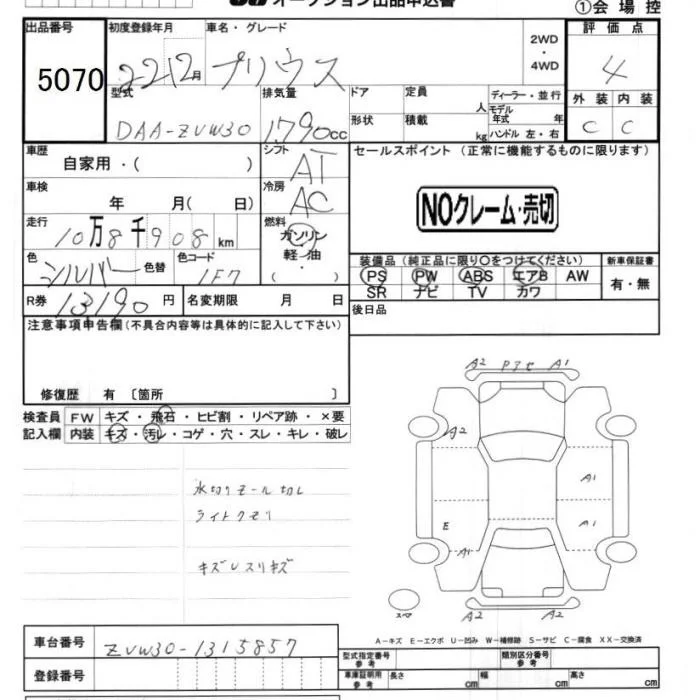 オークション出品申込書
①会場控
出品番号 初度登録年月 車名・グレード 2WD・4WD 評価点
5070 22 12月 プリウス 4
型式 排気量 ドア 定員 人 ディーラー・並行 外装 内装
DAA-ZVW30 1790cc 形状 積載 kg モデル年式 年 ハンドル 左・右 C C
車歴 自家用・( ) シフト AT セールスポイント (正常に機能するものに限ります)
車検 年 月( 日) 冷房 AC NOクレーム・売切
走行 10万8千908km 燃料 ガソリン 軽・油 ( )
色 シルバー 色替 色コード 1F7
装備品 (純正品に限り○をつけてください) 新車保証書
PS PW ABS エアB AW 有・無
SR ナビ TV カワ
R券 13190円 名変期限 月 日 後日品
注意事項申告欄(不具合内容等は具体的に記入して下さい)
修復歴 有 〔箇所 〕
検査員 FW キズ・飛石・ヒビ割・リペア跡・×要
記入欄 内装 キズ・汚レ・コゲ・穴・スレ・キレ・破レ
水切りモール切レ
ライトクモリ
キズUスリキズ
A2 Pアセ A1
A2
A1
E A1
A1
スペア A2 A2
A-キズ E-エクボ U-凹み W-補修跡 S-サビ C-腐食 XX-交換済
車台番号 ZVW30-1315857
登録番号
型式指定番号 参考 類別区分番号 参考
車庫証明用 参考 長さ cm 幅 cm 高さ cm